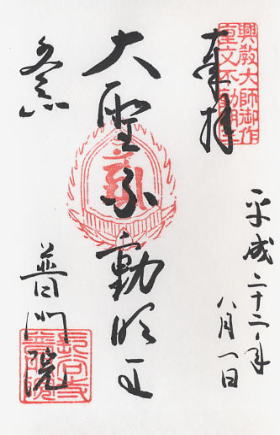 奉拝
興教大師御作
重文不動明王
平成二十二年
八月一日
大聖不動明王
普門院